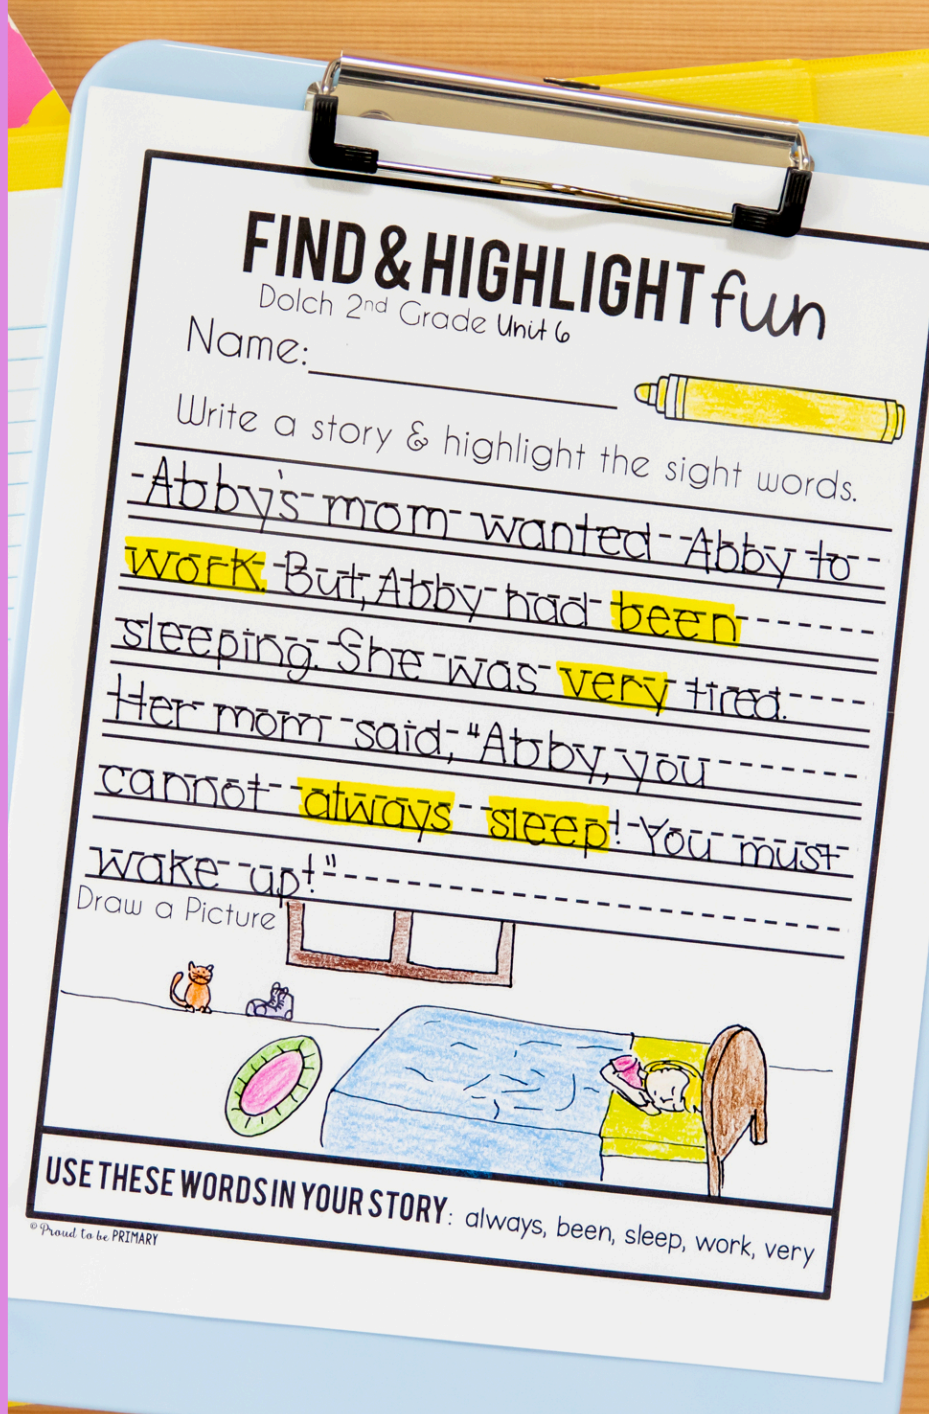 FIND & HIGHLIGHT fun
Dolch 2nd Grade Unit 6
Name:
Write a story & highlight the sight words.
Abby's mom wanted Abby to
work. But, Abby had been
sleeping. She was very tired.
Her mom said, "Abby, you
cannot always sleep! You must
wake up!"
Draw a Picture
USE THESE WORDS IN YOUR STORY: always, been, sleep, work, very
© Proud to be PRIMARY